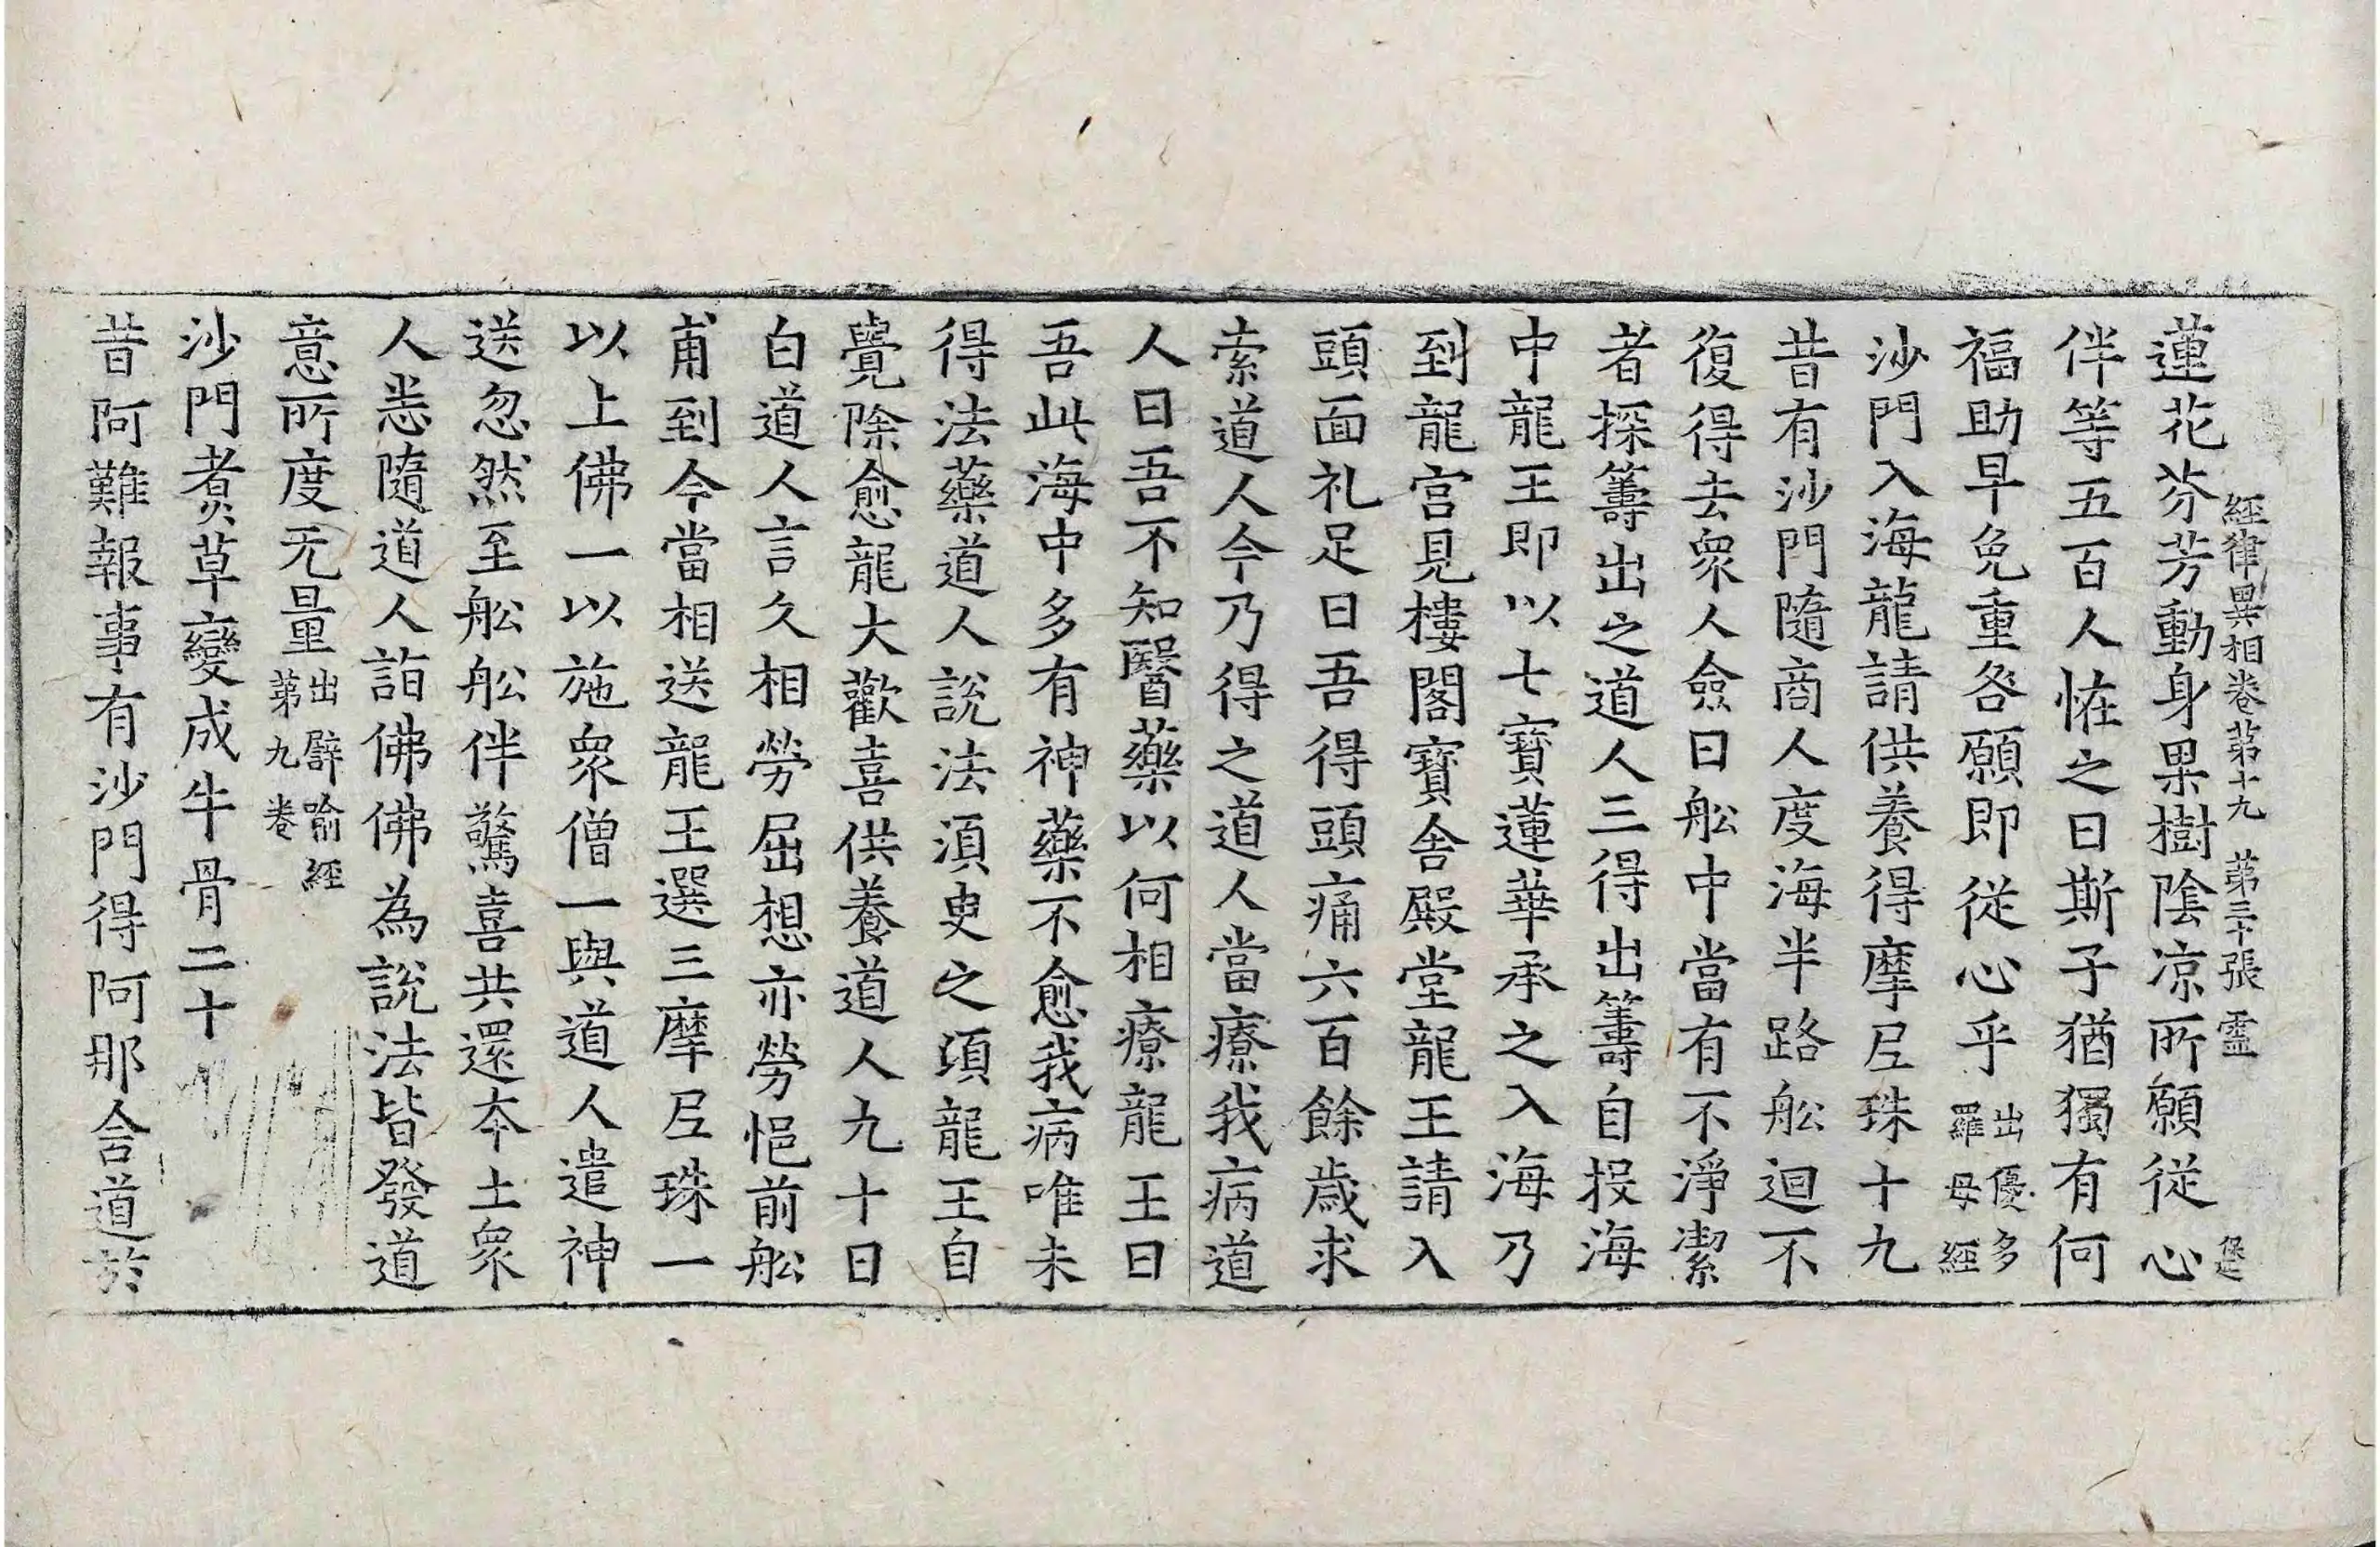 經律異相卷第十九 第三十張 靈
蓮花芬芳動身果樹陰凉所願從心
伴等五百人恠之曰斯子猶獨有何
福助早免重咎願即從心乎出優多羅母經
沙門入海龍請供養得摩尼珠十九
昔有沙門隨商人度海半路舩迴不
復得去衆人僉曰舩中當有不淨潔
者探籌出之道人三得出籌自投海
中龍王即以七寶蓮華承之入海乃
到龍宮見樓閣寶舍殿堂龍王請入
頭面礼足曰吾得頭痛六百餘歲求
索道人今乃得之道人當療我病道
人曰吾不知醫藥以何相療龍王曰
吾此海中多有神藥不愈我病唯未
得法藥道人說法須臾之頃龍王自
覺除愈龍大歡喜供養道人九十日
白道人言久相勞屈想亦勞悒前舩
甫到今當相送龍王選三摩尼珠一
以上佛一以施衆僧一與道人遣神
送忽然至舩舩伴驚喜共還夲土衆
人悉隨道人詣佛佛為說法皆發道
意所度无量出譬喻經第九卷
沙門煮草變成牛骨二十
昔阿難報事有沙門得阿那含道於